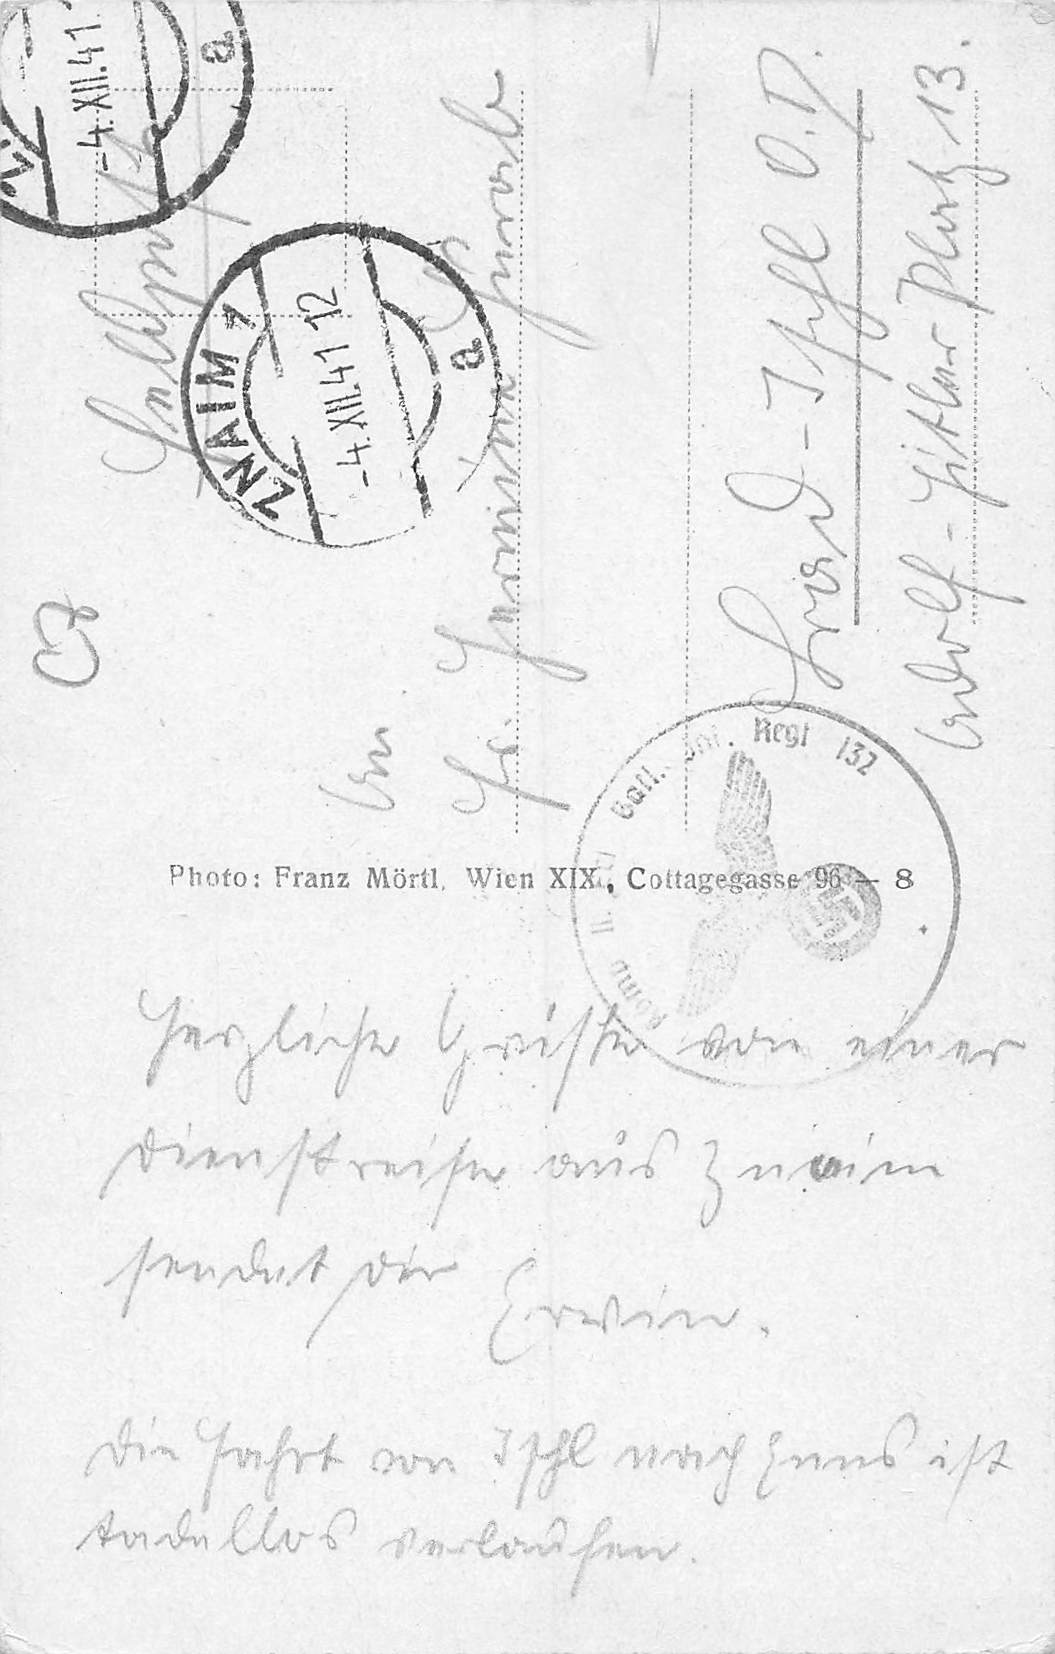 Feldpost
ZNAIM 1
-4.XII.41 12
a
-4.XII.41
a
An
Fr. Hermine
Bad-Ischl O.D.
Adolf-Hitler Platz 13.
Batl. Inf. Regt 132
Photo: Franz Mörtl, Wien XIX., Cottagegasse 96 — 8
Herzliche Grüße von einer
Dienstreise aus Znaim
sendet dir
Erwin.
Die Fahrt von Ischl nach Enns ist
tadellos verlaufen.